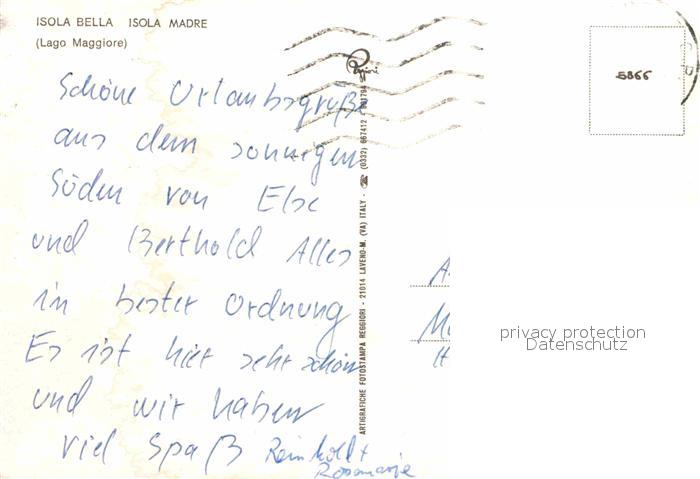 ISOLA BELLA ISOLA MADRE
(Lago Maggiore)
Schöne Urlaubsgrüße
aus dem sonnigen
Süden von Else
und Berthold Alles
in bester Ordnung
Es ist hier sehr schön
und wir haben
viel Spaß Reinhold +
Rosemarie
ARTIGRAFICHE FOTOSTAMPA REGGIORI - 21014 LAVENO-M. (VA) ITALY - ☎ (0332) 667412
5866
A
M
H
privacy protection
Datenschutz